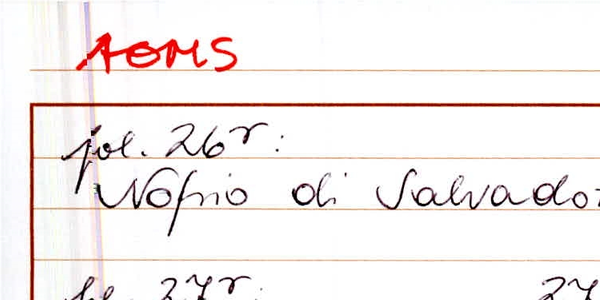 AOMS
fol. 26r:
Nofrio di Salvador
fol. 27r: 27